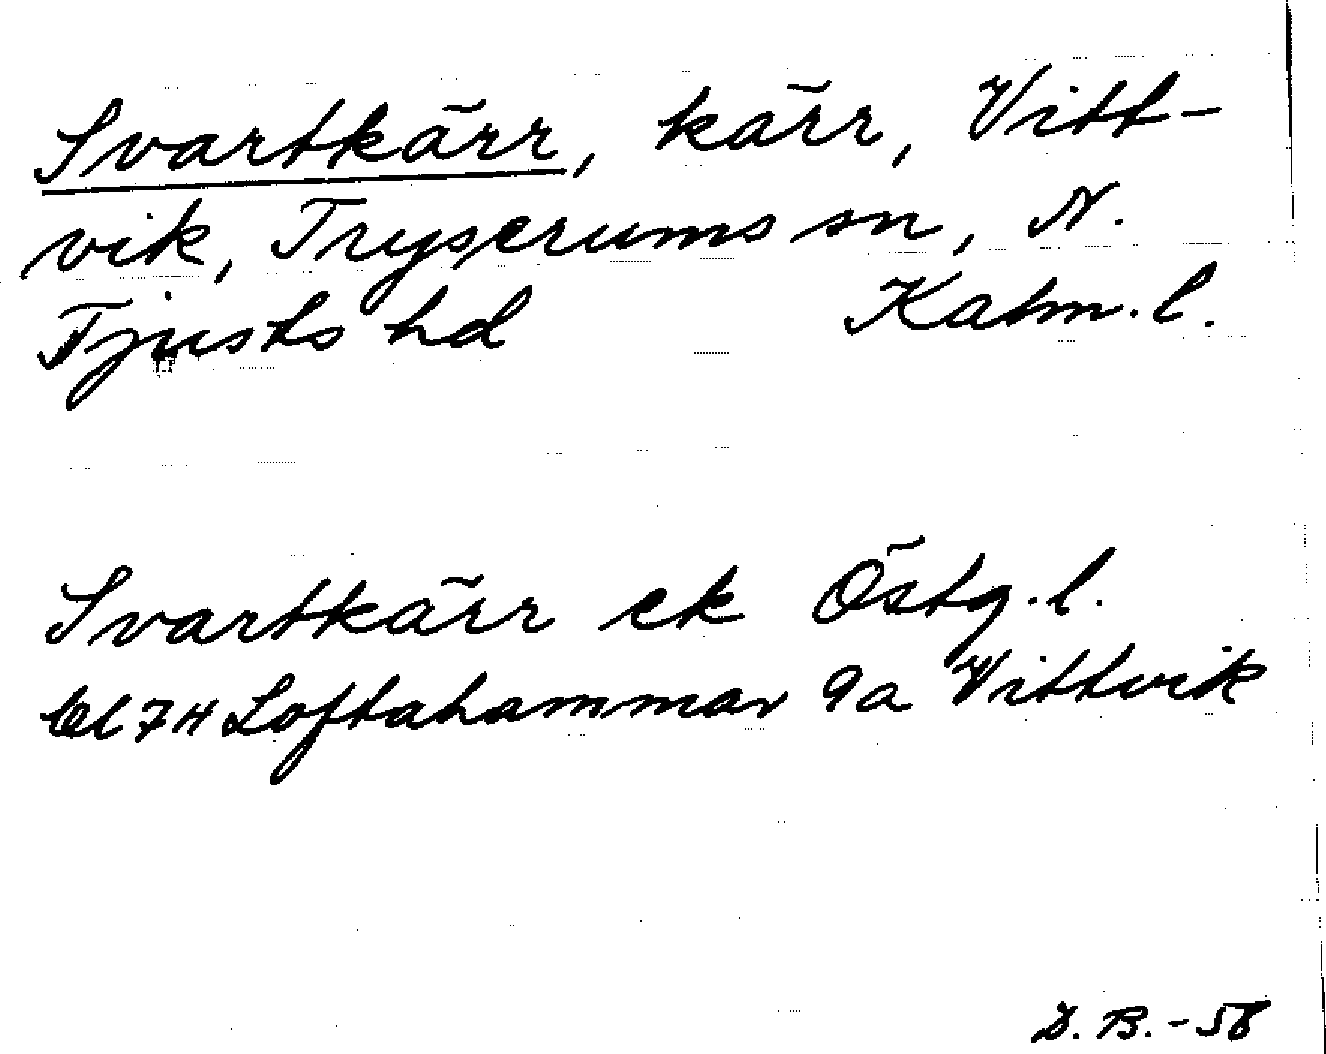 Svartkärr, kärr, Vitt-
vik, Tryserums sn, N.
Tjusts hd Kalm. l.
Svartkärr ek Östg. l.
bl 7H Loftahammar 9a Vittvik
D. B. - 56